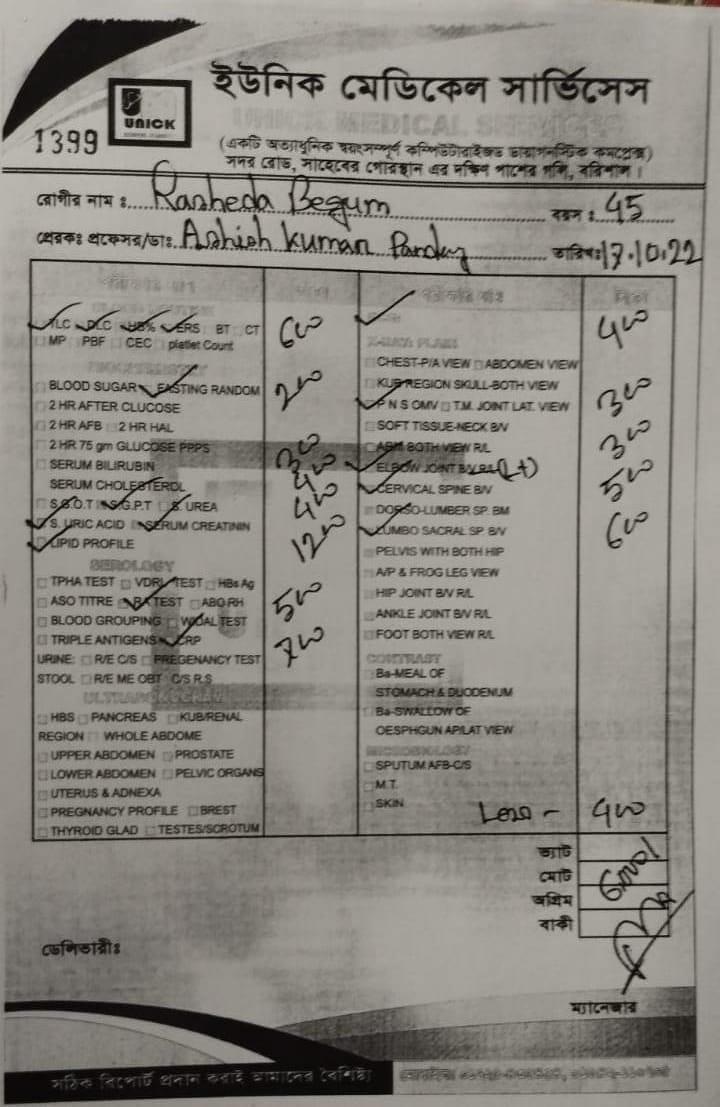 ইউনিক মেডিকেল সার্ভিসেস
UNICK
1399
(একটি অত্যাধুনিক স্বয়ংসম্পূর্ণ কম্পিউটারাইজড ডায়াগনস্টিক কমপ্লেক্স)
সদর রোড, সাহেবের গোরস্থান এর দক্ষিণ পাশের গলি, বরিশাল।
রোগীর নাম : Rasheda Begum বয়স : 45
প্রেরক: প্রফেসর/ডা: Ashish Kumar Panday তারিখ: 17.10.22
TLC DLC HB% ERS BT CT 600
MP PBF CEC platlet Count
BLOOD SUGAR FASTING RANDOM 200
2 HR AFTER CLUCOSE
2 HR AFB 2 HR HAL
2 HR 75 gm GLUCOSE PPPS
SERUM BILIRUBIN
SERUM CHOLESTEROL
S.G.O.T S.G.P.T S. UREA 400
S. URIC ACID SERUM CREATININ 400
LIPID PROFILE 1200
SEROLOGY
TPHA TEST VDRL TEST HBs Ag
ASO TITRE RA TEST ABO RH 500
BLOOD GROUPING WIDAL TEST
TRIPLE ANTIGENS CRP 700
URINE: R/E C/S PREGENANCY TEST
STOOL R/E ME OBT C/S R.S
HBS PANCREAS KUB/RENAL
REGION WHOLE ABDOME
UPPER ABDOMEN PROSTATE
LOWER ABDOMEN PELVIC ORGANS
UTERUS & ADNEXA
PREGNANCY PROFILE BREST
THYROID GLAD TESTES/SCROTUM
400
CHEST-P/A VIEW ABDOMEN VIEW
KUB REGION SKULL-BOTH VIEW
P N S OMV T.M. JOINT LAT. VIEW 300
SOFT TISSUE-NECK B/V
ARM BOTH VIEW R/L 300
ELBOW JOINT B/V R/L (Lt)
CERVICAL SPINE B/V 500
DORSO-LUMBER SP. BM
LUMBO SACRAL SP. B/V 600
PELVIS WITH BOTH HIP
A/P & FROG LEG VIEW
HIP JOINT B/V R/L
ANKLE JOINT B/V R/L
FOOT BOTH VIEW R/L
CONTRAST
Ba-MEAL OF
STOMACH & DUODENUM
Ba-SWALLOW OF
OESPHGUN AP/LAT VIEW
SPUTUM AFB-C/S
M.T.
SKIN
Less - 400
ভ্যাট
মোট 6000/
অগ্রিম
বাকী
ডেলিভারীঃ
ম্যানেজার
সঠিক রিপোর্ট প্রদান করাই আমাদের বৈশিষ্ট্য